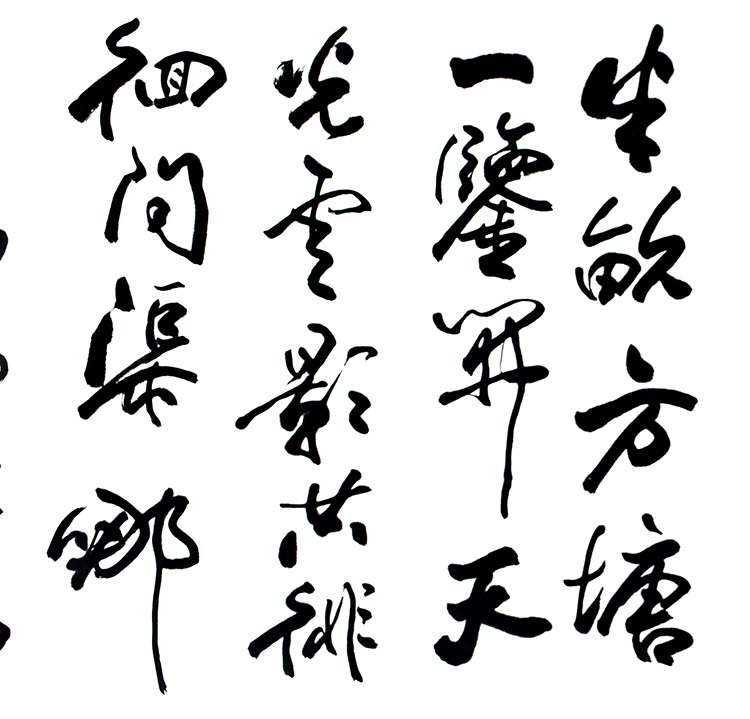 半畝方塘
一鑒開天
光雲影共徘
徊問渠哪